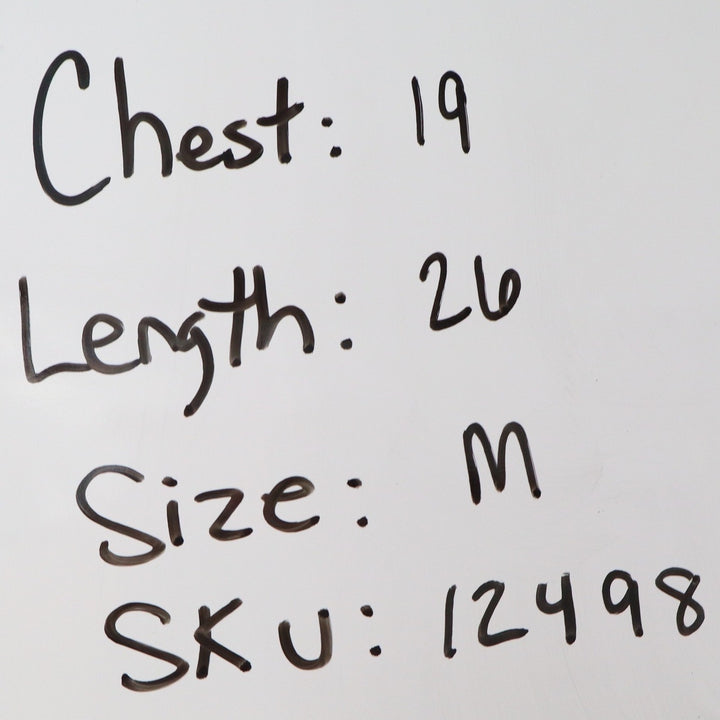 Chest: 19
Length: 26
Size: M
SKU: 12498